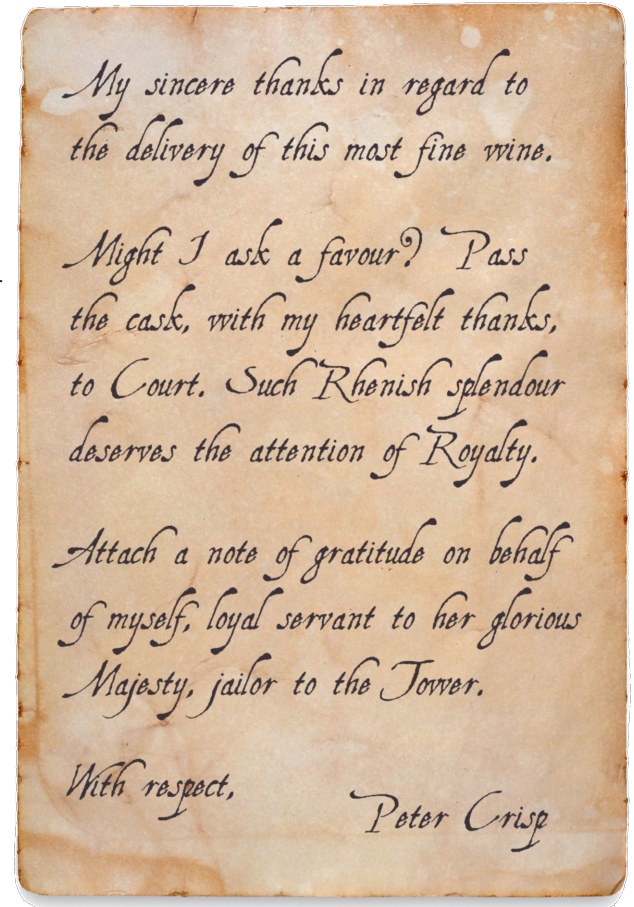 My sincere thanks in regard to
the delivery of this most fine wine.
Might I ask a favour? Pass
the cask, with my heartfelt thanks,
to Court. Such Rhenish splendour
deserves the attention of Royalty.
Attach a note of gratitude on behalf
of myself, loyal servant to her glorious
Majesty, jailor to the Tower.
With respect,
Peter Crisp